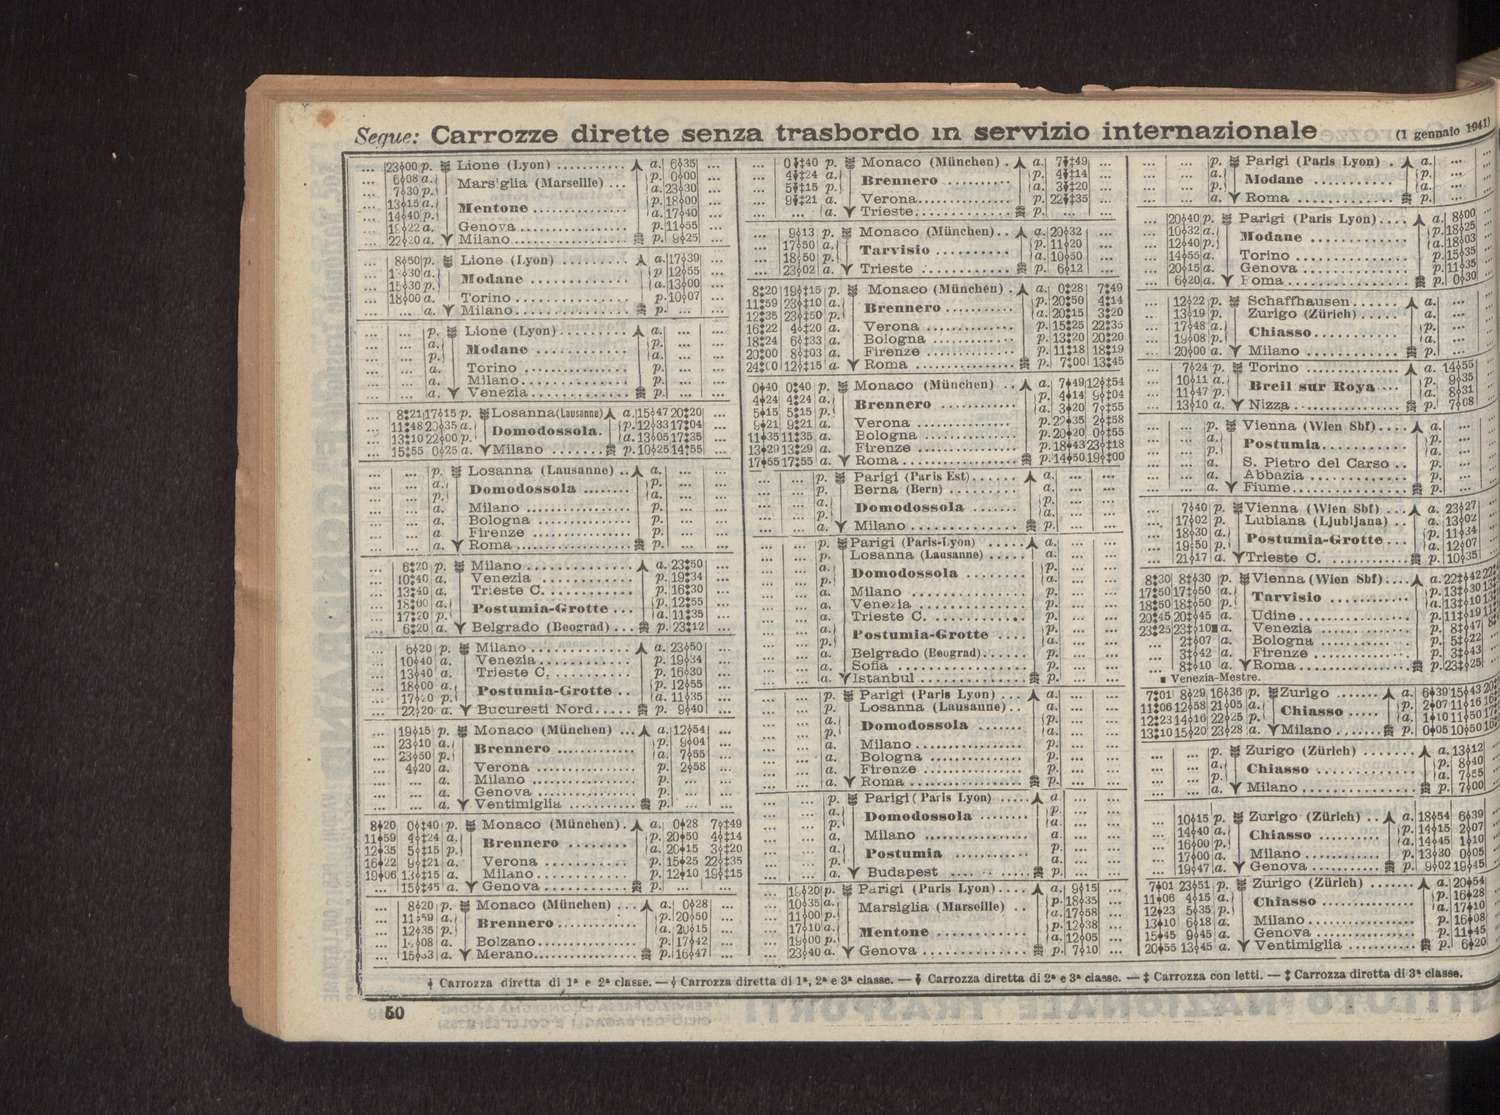 Segue: Carrozze dirette senza trasbordo in servizio internazionale (1 gennaio 1941)
... 23⸸00 p. Lione (Lyon) a. 6⸸35 ...
... 6⸸08 a. Mars'glia (Marseille) p. 6⸸00 ...
... 7⸸30 p. a. 23⸸30 ...
... 13⸸15 a. Mentone p. 18⸸00 ...
... 14⸸40 p. a. 17⸸40 ...
... 19⸸22 a. Genova p. 11⸸55 ...
... 22⸸20 a. Milano p. 9⸸25 ...
... 8⸸50 p. Lione (Lyon) a. 17⸸39 ...
... 30 a. Modane p. 12⸸55 ...
... 15⸸30 p. a. 13⸸00 ...
... 18⸸00 a. Torino p. 10⸸07 ...
... ... a. Milano p. ... ...
p. Lione (Lyon) a. ... ...
a. Modane p. ... ...
p. a. ... ...
a. Torino p. ... ...
a. Milano p. ... ...
a. Venezia p. ... ...
... 8⸸21 17⸸15 p. Losanna (Lausanne) a. 15⸸47 20⸸20 ...
... 11⸸48 20⸸35 a. Domodossola. p. 12⸸33 17⸸04 ...
... 13⸸10 22⸸00 p. a. 13⸸05 17⸸35 ...
... 15⸸55 0⸸25 a. Milano p. 10⸸25 14⸸55 ...
p. Losanna (Lausanne) a.
a. Domodossola p.
p. a.
a. Milano p.
a. Bologna p.
a. Firenze p.
a. Roma p.
... 6‡20 p. Milano a. 23‡50 ...
... 10‡40 a. Venezia p. 19‡34 ...
... 13‡40 a. Trieste C. p. 16‡30 ...
... 18‡00 a. Postumia-Grotte p. 12‡55 ...
... 17‡20 p. a. 11‡35 ...
... 6‡20 a. Belgrado (Beograd) p. 23‡12 ...
... 6⸸20 p. Milano a. 23⸸50 ...
... 10⸸40 a. Venezia p. 19⸸34 ...
... 13⸸40 a. Trieste C. p. 16⸸30 ...
... 18⸸00 a. Postumia-Grotte p. 12⸸55 ...
... 17⸸20 p. a. 11⸸35 ...
... 22⸸20 a. Bucuresti Nord p. 9⸸40 ...
... 19⸸15 p. Monaco (München) a. 12⸸54 ...
... 23⸸10 a. Brennero p. 9⸸04 ...
... 23⸸50 p. a. 7⸸55 ...
... 4⸸20 a. Verona p. 2⸸58 ...
... ... a. Milano p. ... ...
... ... a. Genova p. ... ...
... ... a. Ventimiglia p. ... ...
8⸸20 0⸸‡40 p. Monaco (München) a. 0⸸28 7⸸‡49
11⸸59 4⸸‡24 a. Brennero p. 20⸸50 4⸸‡14
12⸸35 5⸸‡15 p. a. 20⸸15 3⸸‡20
16⸸22 9⸸‡21 a. Verona p. 15⸸25 22⸸‡35
19⸸06 13⸸‡15 a. Milano p. 12⸸10 19⸸‡15
... 15⸸‡45 a. Genova p. ... ...
... 8⸸20 p. Monaco (München) a. 0⸸28 ...
... 11⸸59 a. Brennero p. 20⸸50 ...
... 12⸸35 p. a. 20⸸15 ...
... 08 a. Bolzano p. 17⸸42 ...
... a. Merano p. 16⸸47 ...
... 0⸸‡40 p. Monaco (München) a. 7⸸‡49
... 4⸸‡24 a. Brennero p. 4⸸‡14
... 5⸸‡15 p. a. 3⸸‡20
... 9⸸‡21 a. Verona p. 22⸸‡35
... ... a. Trieste p. ... ...
... 9⸸13 p. Monaco (München) a. 20⸸32 ...
... 17⸸50 a. Tarvisio p. 11⸸20 ...
... 18⸸50 p. a. 10⸸50 ...
... 23⸸02 a. Trieste p. 6⸸12 ...
8‡20 19⸸‡15 p. Monaco (München) a. 0‡28 7‡49
11‡59 23⸸‡10 a. Brennero p. 20‡50 4‡14
12‡35 23⸸‡50 p. a. 20‡15 3‡20
16‡22 4⸸‡20 a. Verona p. 15‡25 22‡35
18‡24 6⸸‡33 a. Bologna p. 13‡20 20‡20
20‡00 8⸸‡03 a. Firenze p. 11‡18 18‡19
24‡00 12⸸‡15 a. Roma p. 7‡00 13‡45
0⸸40 0⸸40 p. Monaco (München) a. 7⸸49 12⸸‡54
4⸸24 4⸸24 a. Brennero p. 4⸸14 9⸸‡04
5⸸15 5⸸15 p. a. 3⸸20 7⸸‡55
9⸸21 9⸸21 a. Verona p. 22⸸35 2⸸‡58
11⸸35 11⸸35 a. Bologna p. 20⸸20 0⸸‡55
13⸸29 13⸸29 a. Firenze p. 18⸸43 23⸸‡18
17⸸55 17⸸55 a. Roma p. 14⸸50 19⸸‡00
p. Parigi (Paris Est) a.
p. Berna (Bern) a.
a. Domodossola p.
p. a.
a. Milano p.
p. Parigi (Paris-Lyon) a.
p. Losanna (Lausanne) a.
a. Domodossola p.
p. a.
a. Milano p.
a. Venezia p.
a. Trieste C. p.
a. Postumia-Grotte p.
p. a.
a. Belgrado (Beograd) p.
a. Sofia p.
a. Istanbul p.
p. Parigi (Paris Lyon) a.
p. Losanna (Lausanne) a.
a. Domodossola p.
p. a.
a. Milano p.
a. Bologna p.
a. Firenze p.
a. Roma p.
p. Parigi (Paris Lyon) a.
a. Domodossola p.
p. a.
a. Milano p.
a. Postumia p.
p. a.
a. Budapest p.
... 19⸸20 p. Parigi (Paris Lyon) a. 9⸸15 ...
... 10⸸35 a. Marsiglia (Marseille) p. 18⸸35 ...
... 11⸸00 p. a. 17⸸58 ...
... 17⸸10 a. Mentone p. 12⸸38 ...
... 19⸸00 p. a. 12⸸05 ...
... 23⸸40 a. Genova p. 7⸸10 ...
p. Parigi (Paris Lyon) a.
a. Modane p.
p. a.
a. Roma p.
... 20⸸40 p. Parigi (Paris Lyon) a. 8⸸00
... 10⸸32 a. Modane p. 18⸸25
... 12⸸40 p. a. 18⸸03
... 14⸸55 a. Torino p. 15⸸35
... 20⸸15 a. Genova p. 11⸸35
... 6⸸20 a. Roma p. 0⸸30
... 12⸸22 p. Schaffhausen a. ...
... 13⸸19 p. Zurigo (Zürich) a. ...
... 17⸸48 a. Chiasso p. ...
... 19⸸08 p. a. ...
... 20⸸00 a. Milano p. ...
... 7⸸24 p. Torino a. 14⸸55
... 10⸸11 a. Breil sur Roya p. 9⸸35
... 11⸸47 p. a. 8⸸31
... 13⸸10 a. Nizza p. 7⸸08
p. Vienna (Wien Sbf) a.
a. Postumia p.
p. a.
a. S. Pietro del Carso p.
a. Abbazia p.
a. Fiume p.
... 7⸸40 p. Vienna (Wien Sbf) a. 23⸸27
... 17⸸02 p. Lubiana (Ljubljana) a. 13⸸02
... 18⸸30 a. Postumia-Grotte p. 11⸸34
... 19⸸50 p. a. 12⸸07
... 21⸸17 a. Trieste C. p. 10⸸35
8‡30 8⸸‡30 p. Vienna (Wien Sbf) a. 22⸸‡42
17‡50 17⸸‡50 a. Tarvisio p. 13⸸‡30
18‡50 18⸸‡50 p. a. 13⸸‡10
20‡45 20⸸‡45 a. Udine p. 11⸸‡19
23‡25 23⸸‡10■ a. Venezia p. 8⸸‡47
... 2⸸‡07 a. Bologna p. 5⸸‡22
... 3⸸‡42 a. Firenze p. 3⸸‡43
... 8⸸‡10 a. Roma p. 23⸸‡25
■ Venezia-Mestre.
7⸸01 8⸸29 16⸸36 p. Zurigo a. 6⸸39 15⸸43
11⸸06 12⸸58 21⸸05 a. Chiasso p. 2⸸07 11⸸16
12⸸23 14⸸16 22⸸25 p. a. 1⸸10 11⸸50
13⸸10 15⸸20 23⸸28 a. Milano p. 0⸸05 10⸸50
p. Zurigo (Zürich) a. 13⸸12
a. Chiasso p. 8⸸40
p. a. 7⸸55
a. Milano p. 7⸸00
... 10⸸15 p. Zurigo (Zürich) a. 18⸸54 6⸸39
... 14⸸40 a. Chiasso p. 14⸸15 2⸸07
... 16⸸00 p. a. 14⸸45 1⸸10
... 17⸸00 a. Milano p. 13⸸30 0⸸05
... 19⸸47 a. Genova p. 9⸸02 19⸸45
7⸸01 23⸸51 p. Zurigo (Zürich) a. 20⸸54
11⸸06 4⸸15 a. Chiasso p. 16⸸28
12⸸23 5⸸35 p. a. 17⸸10
13⸸10 6⸸18 a. Milano p. 16⸸08
15⸸45 9⸸45 a. Genova p. 11⸸45
20⸸55 13⸸45 a. Ventimiglia p. 6⸸20
Carrozza diretta di 1ª e 2ª classe. — Carrozza diretta di 1ª, 2ª e 3ª classe. — Carrozza diretta di 2ª e 3ª classe. — ‡ Carrozza con letti. — Carrozza diretta di 3ª classe.
50